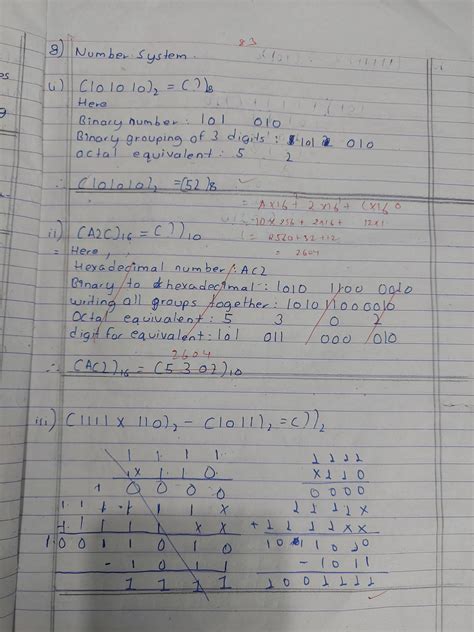 83
8) Number System
i) (101010)₂ = (?)₈
Here
Binary number : 101 010
Binary grouping of 3 digits : 101 010
octal equivalent : 5 2
∴ (101010)₂ = (52)₈
= A×16 + 2×16 + C×16 0
= 10×256 + 2×16 + 12×1
= 2560+32+12
= 2604
ii) (A2C)₁₆ = (?)₁₀
= Here,
Hexadecimal number : AC2
Binary to hexadecimal : 1010 1100 0010
writing all groups together : 1010 1100 0010
Octal equivalent : 5 3 0 2
digit for equivalent : 101 011 000 010
2604
∴ (AC2)₁₆ = (5302)₁₀
iii) (1111 × 110)₂ - (1011)₂ = (?)₂
1 1 1 1
× 1 1 0
0 0 0 0
1 1 1 1 ×
1 0 0 1 1 0 1 0
- 1 0 1 1
1 1 1 1
1111
×110
0000
1111×
+ 1111××
1011010
- 1011
1001111